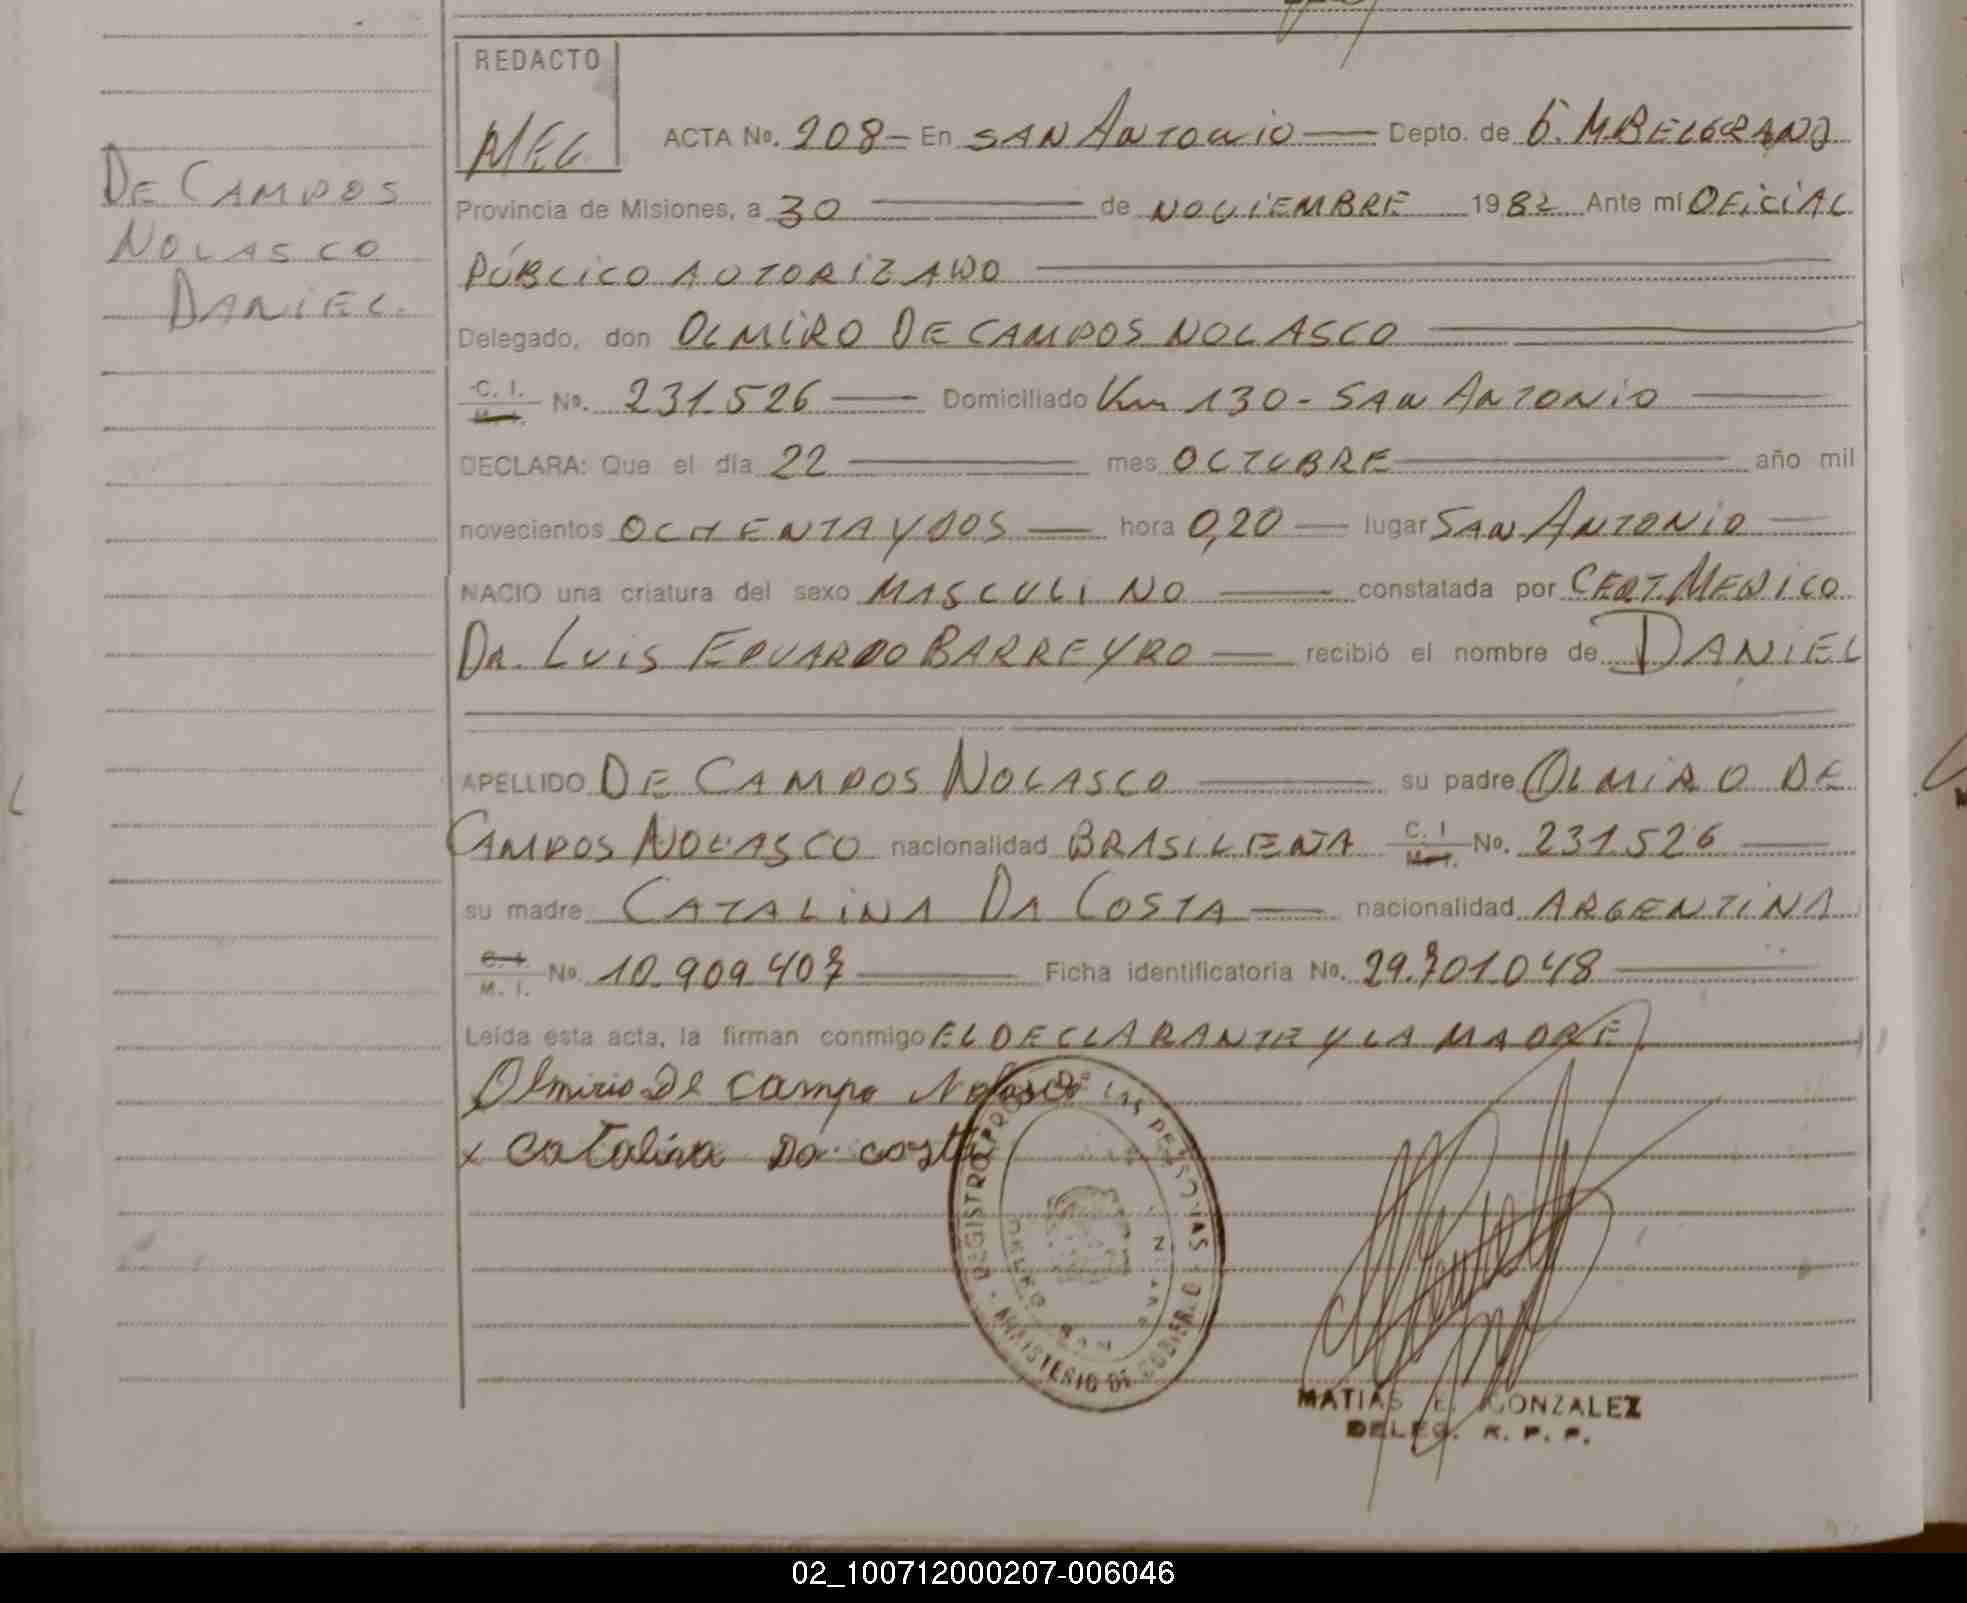 REDACTO
MEG
ACTA No. 208 - En SAN ANTONIO — Depto. de G. M. BELGRANO
DE CAMPOS
NOLASCO
DANIEL.
Provincia de Misiones, a 30 — de NOVIEMBRE 1982 Ante mí OFICIAL
PÚBLICO AUTORIZADO
Delegado, don OLMIRO DE CAMPOS NOLASCO
C. I. M. I. No. 231.526 — Domiciliado Km 130 - SAN ANTONIO
DECLARA: Que el día 22 — mes OCTUBRE — año mil
novecientos OCHENTA Y DOS — hora 0,20 — lugar SAN ANTONIO
NACIO una criatura del sexo MASCULINO — constatada por CERT. MEDICO
DR. LUIS EDUARDO BARREYRO — recibió el nombre de DANIEL
APELLIDO DE CAMPOS NOLASCO — su padre OLMIRO DE
CAMPOS NOLASCO nacionalidad BRASILEÑA C. I. M. I. No. 231.526
su madre CATALINA DA COSTA — nacionalidad ARGENTINA
C. I. M. I. No. 10.909.407 — Ficha identificatoria No. 29.701.048
Leída esta acta, la firman conmigo EL DECLARANTE Y LA MADRE
Olmirio De campo Nolasco
x Catalina Da costa
REGISTRO PROV. DE LAS PERSONAS
MINISTERIO DE GOBIERNO
MATIAS E. GONZALEZ
DELEG. R. P. P.
02_100712000207-006046